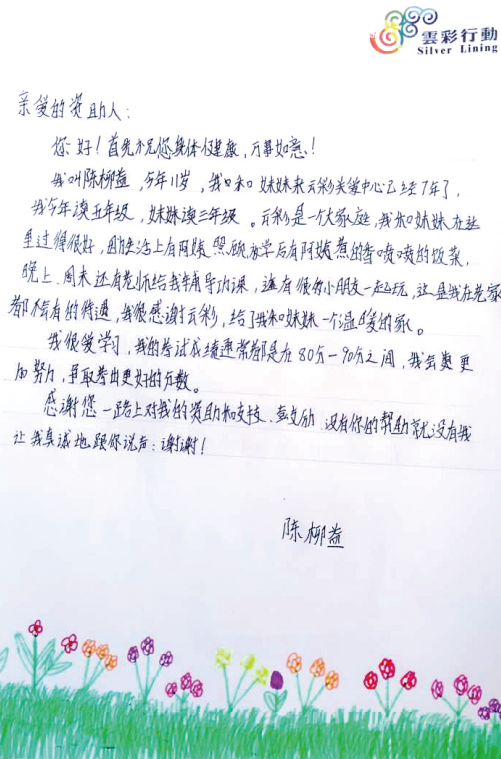 雲彩行動
Silver Lining
亲爱的资助人：
您好！首先祝您身体健康，万事如意！
我叫陈柳益，今年11岁，我和妹妹来云彩关爱中心已经7年了，
我今年读五年级，妹妹读三年级。云彩是一个大家庭，我和妹妹在这
里过得很好，因为生活上有阿姨照顾，放学后有阿姨煮的香喷喷的饭菜，
晚上、周末还有老师给我辅导功课，还有很多小朋友一起玩，这是我在老家
都不会有的待遇，我很感谢云彩，给了我和妹妹一个温暖的家。
我很爱学习，我的考试成绩通常都是在80分－90分之间，我会要更
加努力，争取考出更好的分数。
感谢您一路上对我的资助和支持、鼓励 没有你的帮助就没有我
让我真诚地跟你说声：谢谢！
陈柳益